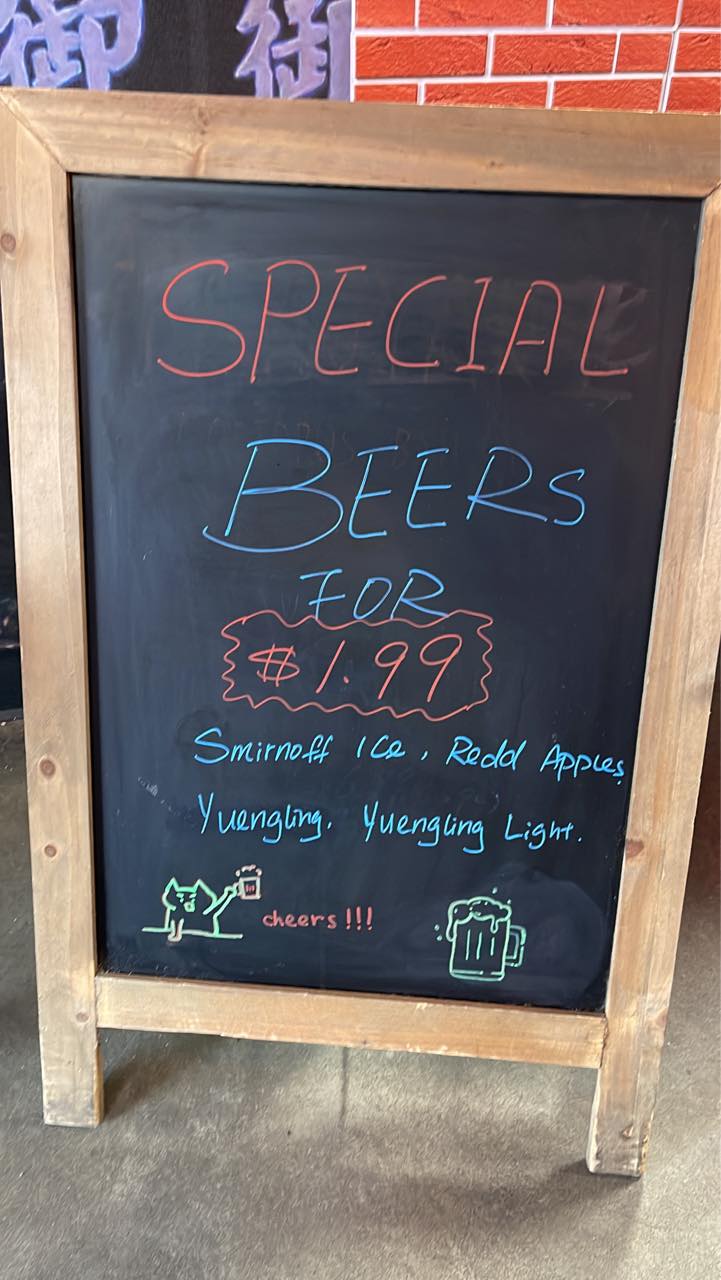 御 御
SPECIAL
BEERS
FOR
$1.99
Smirnoff Ice, Redd Apples,
Yuengling. Yuengling Light.
cheers!!!